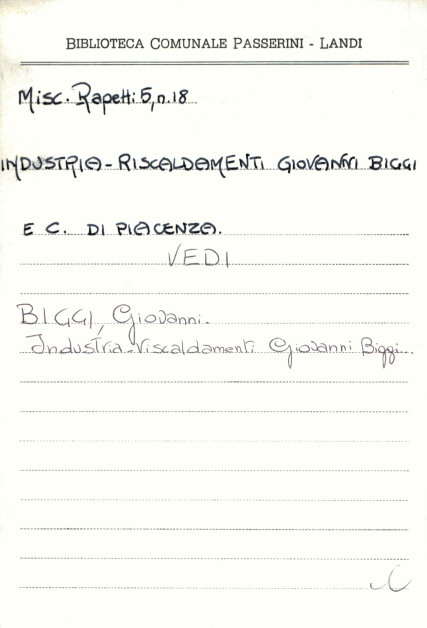 BIBLIOTECA COMUNALE PASSERINI - LANDI
Misc. Rapetti 5, n. 18
INDUSTRIA - RISCALDAMENTI GIOVANNI BIGGI
E C. DI PIACENZA.
VEDI
BIGGI, Giovanni.
Industria-riscaldamenti Giovanni Biggi...